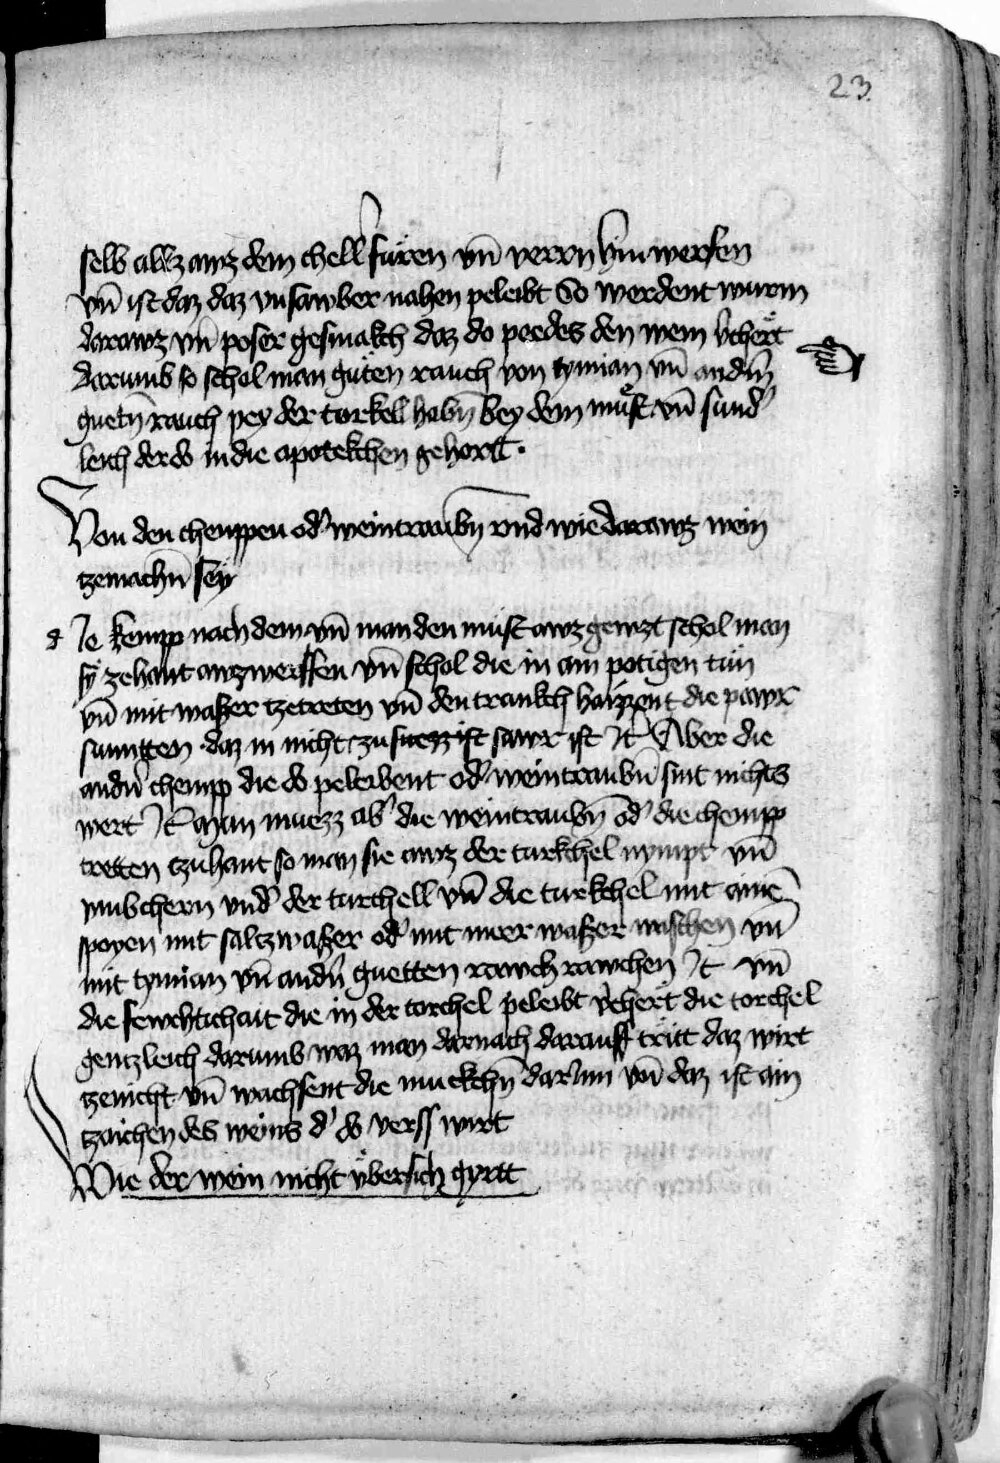 23.
selb allz awz dem chell füren vn̄ verrn hin werfen
vn̄ ist daz daz vnsawber nahen peleibt So werdent wurm
darawz vn̄ poser gesmakch daz do peedes den wein v̄chert
darumb so schol man guten rauch von tymian vn̄ andn̄
guetn̄ rauch pey der torkell habn̄ bey dem must vn̄ sund'
leich der do in die apotekchen gehortt .
Von den chemppen od' weintraubn̄ vnd wie darawz wein
zemachn̄ sey
d Je kempp nach dem vn̄ man den must awz gewzt schol man
sy zehant awzwerffen vn̄ schol die in ain potigen tün
vn̄ mit waßer tzetreten vn̄ den trankch haizzent die pawr
summtten daz in nicht zu suezz ist sawr ist Jt Aber die
andn̄ chempp die do peleibent od' weintraubn̄ sint nichts
wert Jt Man muezz ab' die weintraubn̄ od' die chempp
tretten tzuhant so man sie awz der turkchel nympt vn̄
vmbchern vnd' der turchell vn̄ die turkchel mit aine
spoyen mit saltzwaßer od' mit meer waßer waschen vn̄
mit tymian vn̄ andn̄ guetten rawch rawchen Jt vn̄
die fewchtichait die in der torchel peleibt v̄chert die torchel
gentzleich darumb waz man darnach darauff tritt daz wirt
zenicht vn̄ wachsent die muckchn̄ darInn vn̄ daz ist ain
tzaichen des weins d' do verss wirt
Wie der wein nicht vbersich gyrtt